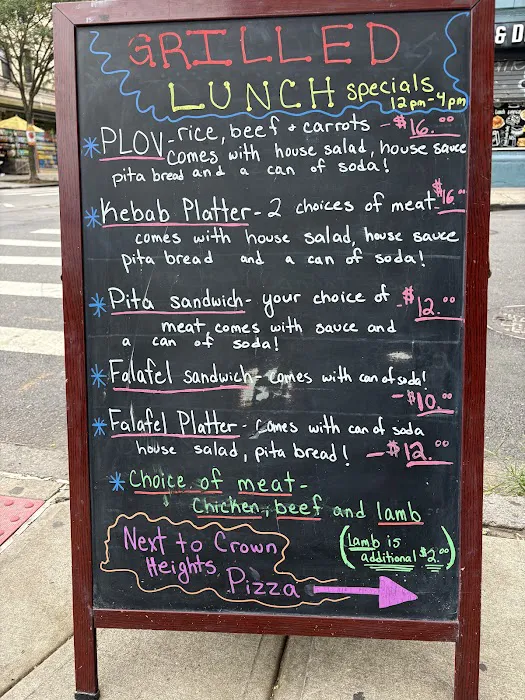 GRILLED
LUNCH specials
12pm-4pm
* PLOV - rice, beef & carrots - $16.00
comes with house salad, house sauce
pita bread and a can of soda!
* Kebab Platter - 2 choices of meat - $16.00
comes with house salad, house sauce
pita bread and a can of soda!
* Pita sandwich - your choice of - $12.00
meat, comes with sauce and
a can of soda!
* Falafel sandwich - comes with can of soda!
- $10.00
* Falafel Platter - comes with can of soda
house salad, pita bread! - $12.00
* Choice of meat -
Chicken, beef and lamb
(Lamb is
additional $2.00)
Next to Crown
Heights
Pizza
& D